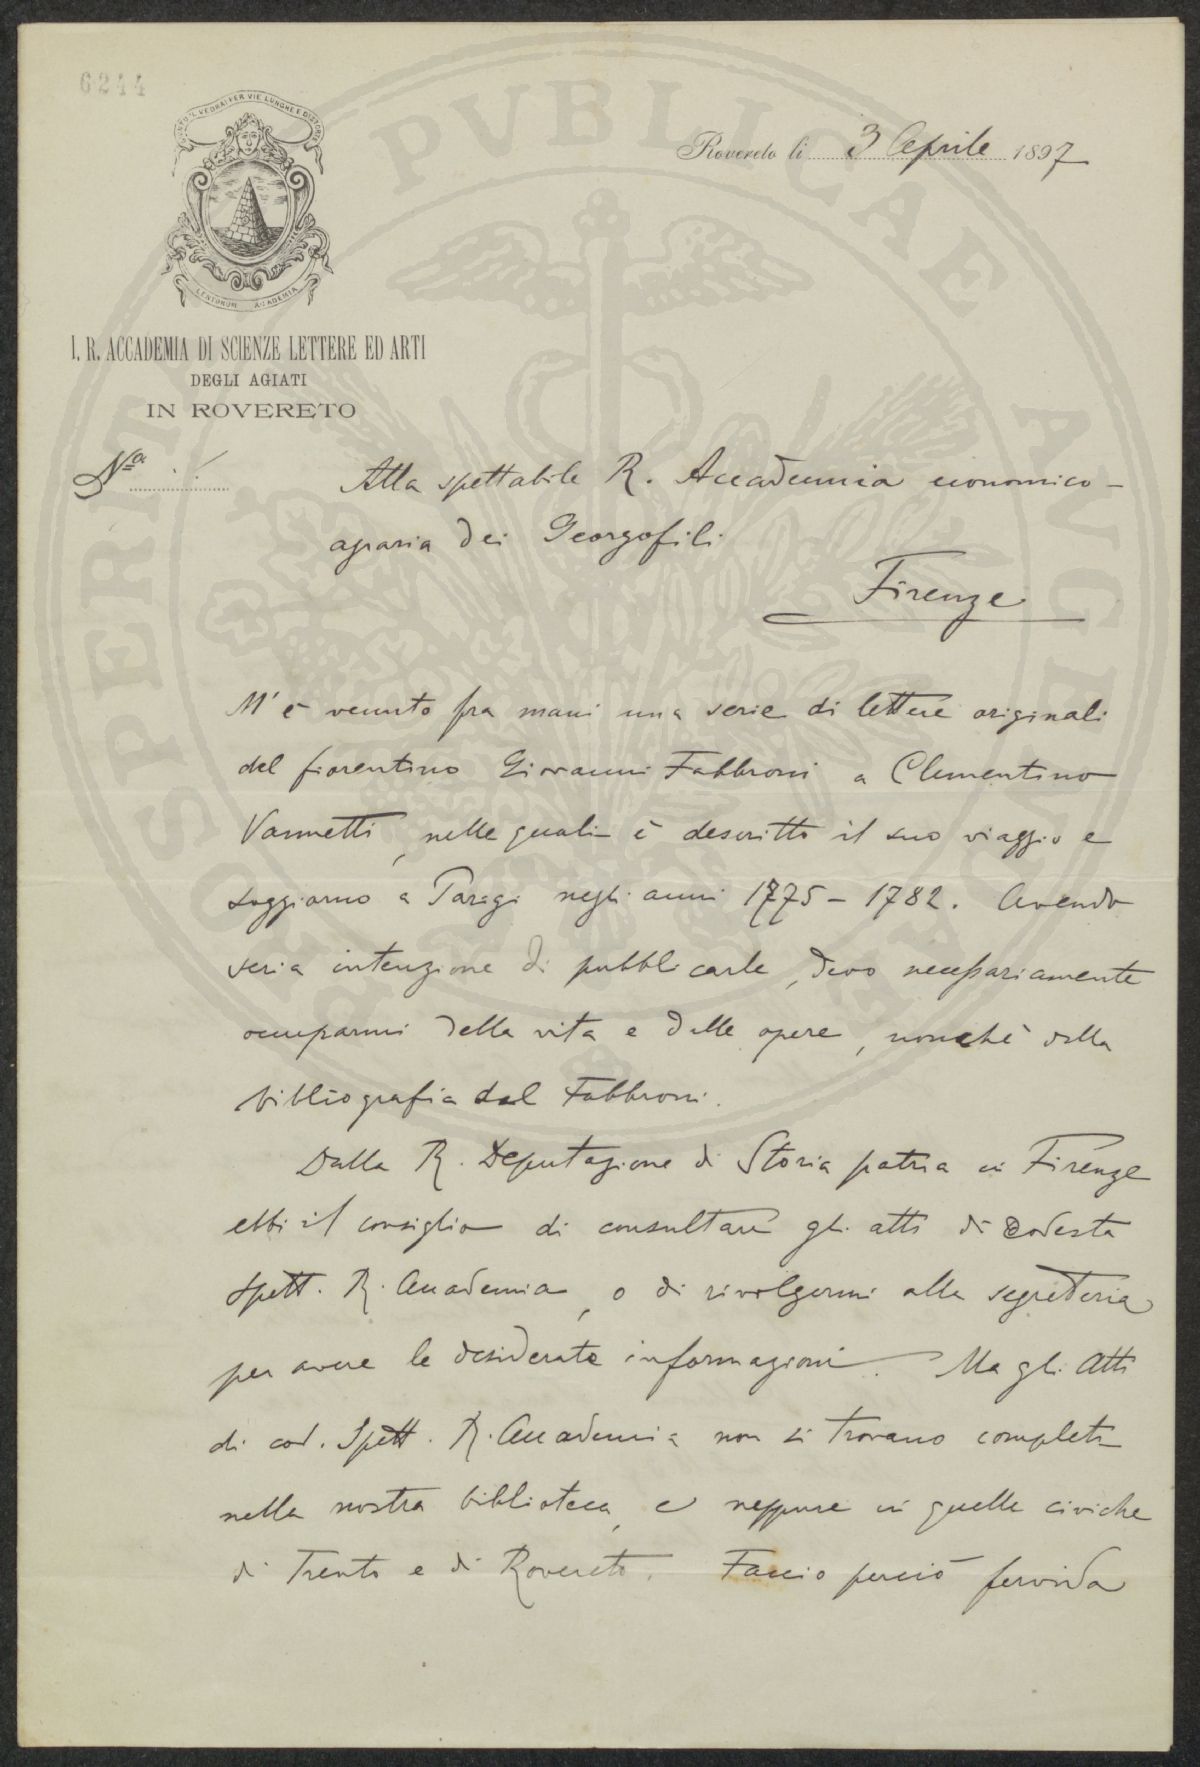 6244
GIUNTO 'L VEDRAI PER VIE LUNGHE E DISTORTE
LENTORUM ACADEMIA
I. R. ACCADEMIA DI SCIENZE LETTERE ED ARTI
DEGLI AGIATI
IN ROVERETO
Rovereto li 3 Aprile 1897
Nº
Alla spettabile R. Accademia economico-
agraria dei Georgofili
Firenze
M' è venuto fra mani una serie di lettere originali
del fiorentino Giovanni Fabbroni a Clementino
Vannetti, nelle quali è descritto il suo viaggio e
soggiorno a Parigi negli anni 1775 - 1782. Avendo
seria intenzione di pubblicarle, devo necessariamente
occuparmi della vita e delle opere, nonchè della
bibliografia del Fabbroni.
Dalla R. Deputazione di Storia patria in Firenze
ebbi il consiglio di consultare gli atti di codesta
spett. R. Accademia, o di rivolgermi alla segreteria
per avere le desiderate informazioni. Ma gli Atti
di cod. Spett. R. Accademia non si trovano completi
nella nostra biblioteca, e neppure in quelle civiche
di Trento e di Rovereto. Faccio perciò fervida
PROSPERITATI PUBLICAE AUGENDAE